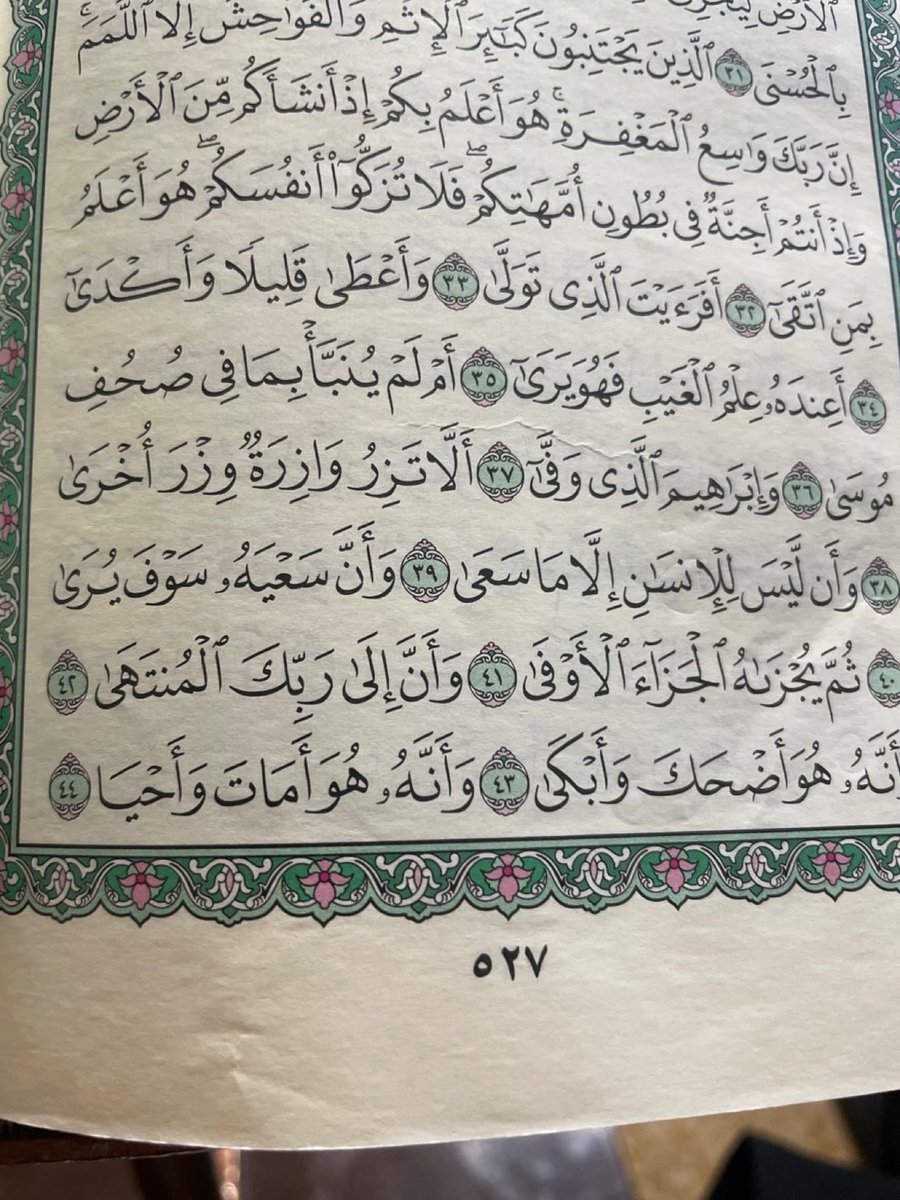 ٱلۡأَرۡضِ لِيَجۡزِيَ
بِٱلۡحُسۡنَى ٣١ ٱلَّذِينَ يَجۡتَنِبُونَ كَبَٰٓئِرَ ٱلۡإِثۡمِ وَٱلۡفَوَٰحِشَ إِلَّا ٱللَّمَمَۚ
إِنَّ رَبَّكَ وَٰسِعُ ٱلۡمَغۡفِرَةِۚ هُوَ أَعۡلَمُ بِكُمۡ إِذۡ أَنشَأَكُم مِّنَ ٱلۡأَرۡضِ
وَإِذۡ أَنتُمۡ أَجِنَّةٞ فِي بُطُونِ أُمَّهَٰتِكُمۡۖ فَلَا تُزَكُّوٓاْ أَنفُسَكُمۡۖ هُوَ أَعۡلَمُ
بِمَنِ ٱتَّقَىٰٓ ٣٢ أَفَرَءَيۡتَ ٱلَّذِي تَوَلَّىٰ ٣٣ وَأَعۡطَىٰ قَلِيلٗا وَأَكۡدَىٰٓ
٣٤ أَعِندَهُۥ عِلۡمُ ٱلۡغَيۡبِ فَهُوَ يَرَىٰٓ ٣٥ أَمۡ لَمۡ يُنَبَّأۡ بِمَا فِي صُحُفِ
مُوسَىٰ ٣٦ وَإِبۡرَٰهِيمَ ٱلَّذِي وَفَّىٰٓ ٣٧ أَلَّا تَزِرُ وَازِرَةٞ وِزۡرَ أُخۡرَىٰ
٣٨ وَأَن لَّيۡسَ لِلۡإِنسَٰنِ إِلَّا مَا سَعَىٰ ٣٩ وَأَنَّ سَعۡيَهُۥ سَوۡفَ يُرَىٰ
٤٠ ثُمَّ يُجۡزَىٰهُ ٱلۡجَزَآءَ ٱلۡأَوۡفَىٰ ٤١ وَأَنَّ إِلَىٰ رَبِّكَ ٱلۡمُنتَهَىٰ ٤٢
أَنَّهُۥ هُوَ أَضۡحَكَ وَأَبۡكَىٰ ٤٣ وَأَنَّهُۥ هُوَ أَمَاتَ وَأَحۡيَا ٤٤
٥٢٧